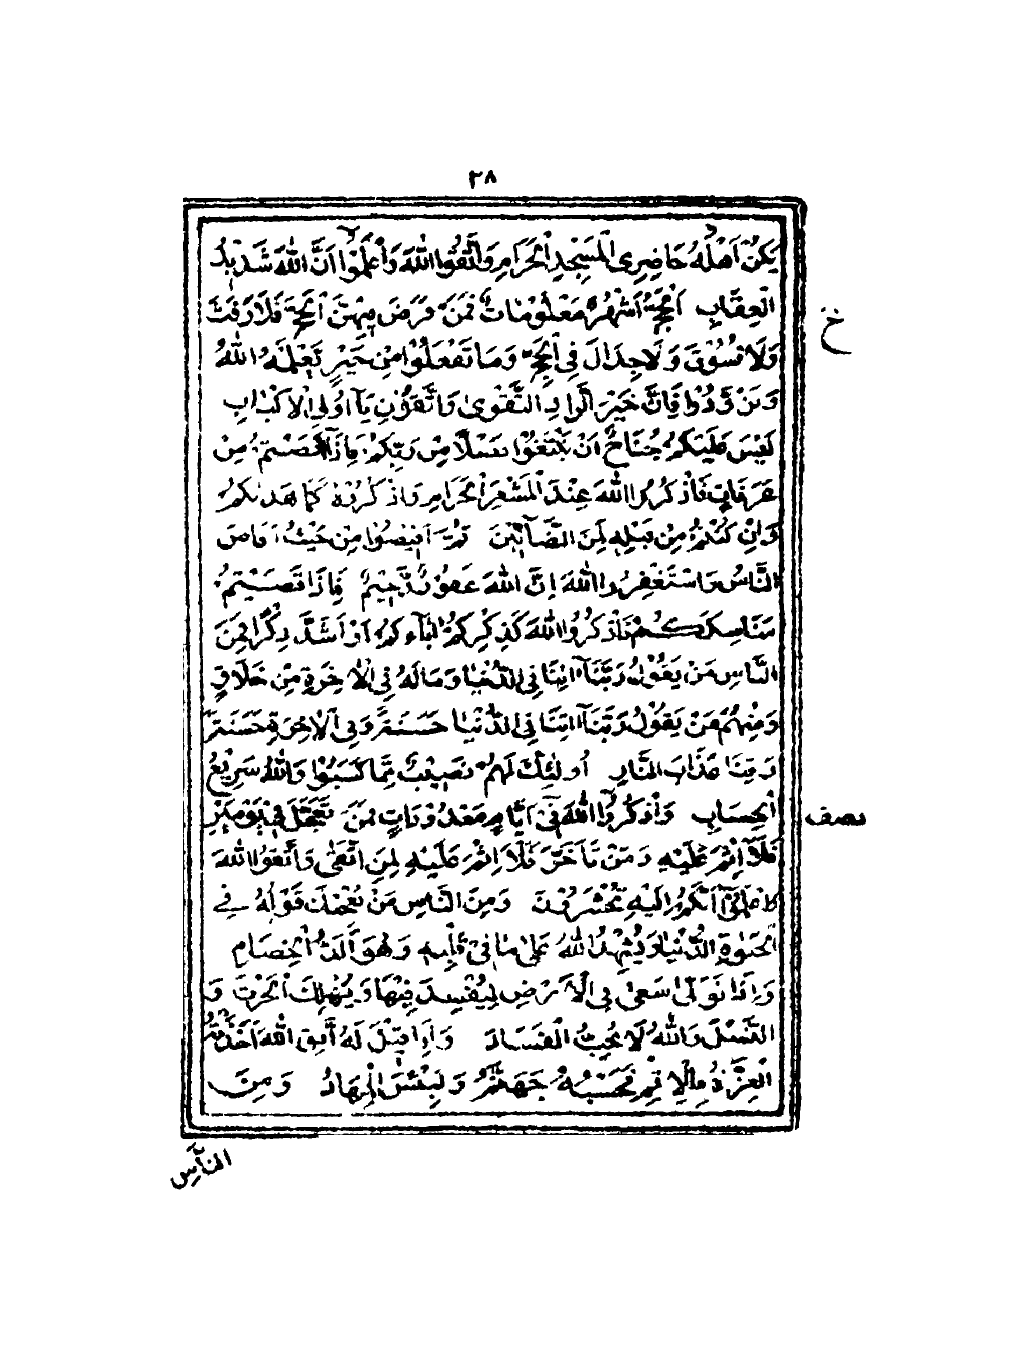 ٢٨
يَكُنْ اَهْلُهُ حَاضِرِى الْمَسْجِدِ الْحَرَامِ وَاتَّقُوا اللهَ وَاعْلَمُوا اَنَّ اللهَ شَدِيْدُ
الْعِقَابِ اَلْحَجُّ اَشْهُرٌ مَعْلُوْمَاتٌ فَمَنْ فَرَضَ فِيْهِنَّ الْحَجَّ فَلَا رَفَثَ
خ
وَلَا فُسُوْقَ وَلَا جِدَالَ فِى الْحَجِّ وَمَا تَفْعَلُوْا مِنْ خَيْرٍ يَعْلَمْهُ اللهُ
وَتَزَوَّدُوْا فَاِنَّ خَيْرَ الزَّادِ التَّقْوٰى وَاتَّقُوْنِ يَآ اُولِى الْاَلْبَابِ
لَيْسَ عَلَيْكُمْ جُنَاحٌ اَنْ تَبْتَغُوْا فَضْلًا مِنْ رَبِّكُمْ فَاِذَآ اَفَضْتُمْ مِنْ
عَرَفَاتٍ فَاذْكُرُوا اللهَ عِنْدَ الْمَشْعَرِ الْحَرَامِ وَاذْكُرُوْهُ كَمَا هَدٰىكُمْ
وَاِنْ كُنْتُمْ مِنْ قَبْلِهٖ لَمِنَ الضَّآلِّيْنَ ثُمَّ اَفِيْضُوْا مِنْ حَيْثُ اَفَاضَ
النَّاسُ وَاسْتَغْفِرُوا اللهَ اِنَّ اللهَ غَفُوْرٌ رَّحِيْمٌ فَاِذَا قَضَيْتُمْ
مَنَاسِكَكُمْ فَاذْكُرُوا اللهَ كَذِكْرِكُمْ اٰبَآءَكُمْ اَوْ اَشَدَّ ذِكْرًا فَمِنَ
النَّاسِ مَنْ يَقُوْلُ رَبَّنَآ اٰتِنَا فِى الدُّنْيَا وَمَا لَهُ فِى الْاٰخِرَةِ مِنْ خَلَاقٍ
وَمِنْهُمْ مَنْ يَقُوْلُ رَبَّنَآ اٰتِنَا فِى الدُّنْيَا حَسَنَةً وَفِى الْاٰخِرَةِ حَسَنَةً
وَقِنَا عَذَابَ النَّارِ اُولٰئِكَ لَهُمْ نَصِيْبٌ مِمَّا كَسَبُوْا وَاللهُ سَرِيْعُ
الْحِسَابِ وَاذْكُرُوا اللهَ فِىْٓ اَيَّامٍ مَعْدُوْدَاتٍ فَمَنْ تَعَجَّلَ فِىْ يَوْمَيْنِ
نصف
فَلَآ اِثْمَ عَلَيْهِ وَمَنْ تَاَخَّرَ فَلَآ اِثْمَ عَلَيْهِ لِمَنِ اتَّقٰى وَاتَّقُوا اللهَ
وَاعْلَمُوْٓا اَنَّكُمْ اِلَيْهِ تُحْشَرُوْنَ وَمِنَ النَّاسِ مَنْ يُعْجِبُكَ قَوْلُهُ فِى
الْحَيٰوةِ الدُّنْيَا وَيُشْهِدُ اللهَ عَلٰى مَا فِىْ قَلْبِهٖ وَهُوَ اَلَدُّ الْخِصَامِ
وَاِذَا تَوَلّٰى سَعٰى فِى الْاَرْضِ لِيُفْسِدَ فِيْهَا وَيُهْلِكَ الْحَرْثَ وَ
النَّسْلَ وَاللهُ لَا يُحِبُّ الْفَسَادَ وَاِذَا قِيْلَ لَهُ اتَّقِ اللهَ اَخَذَتْهُ
الْعِزَّةُ بِالْاِثْمِ فَحَسْبُهُ جَهَنَّمُ وَلَبِئْسَ الْمِهَادُ وَمِنَ
النَّاسِ